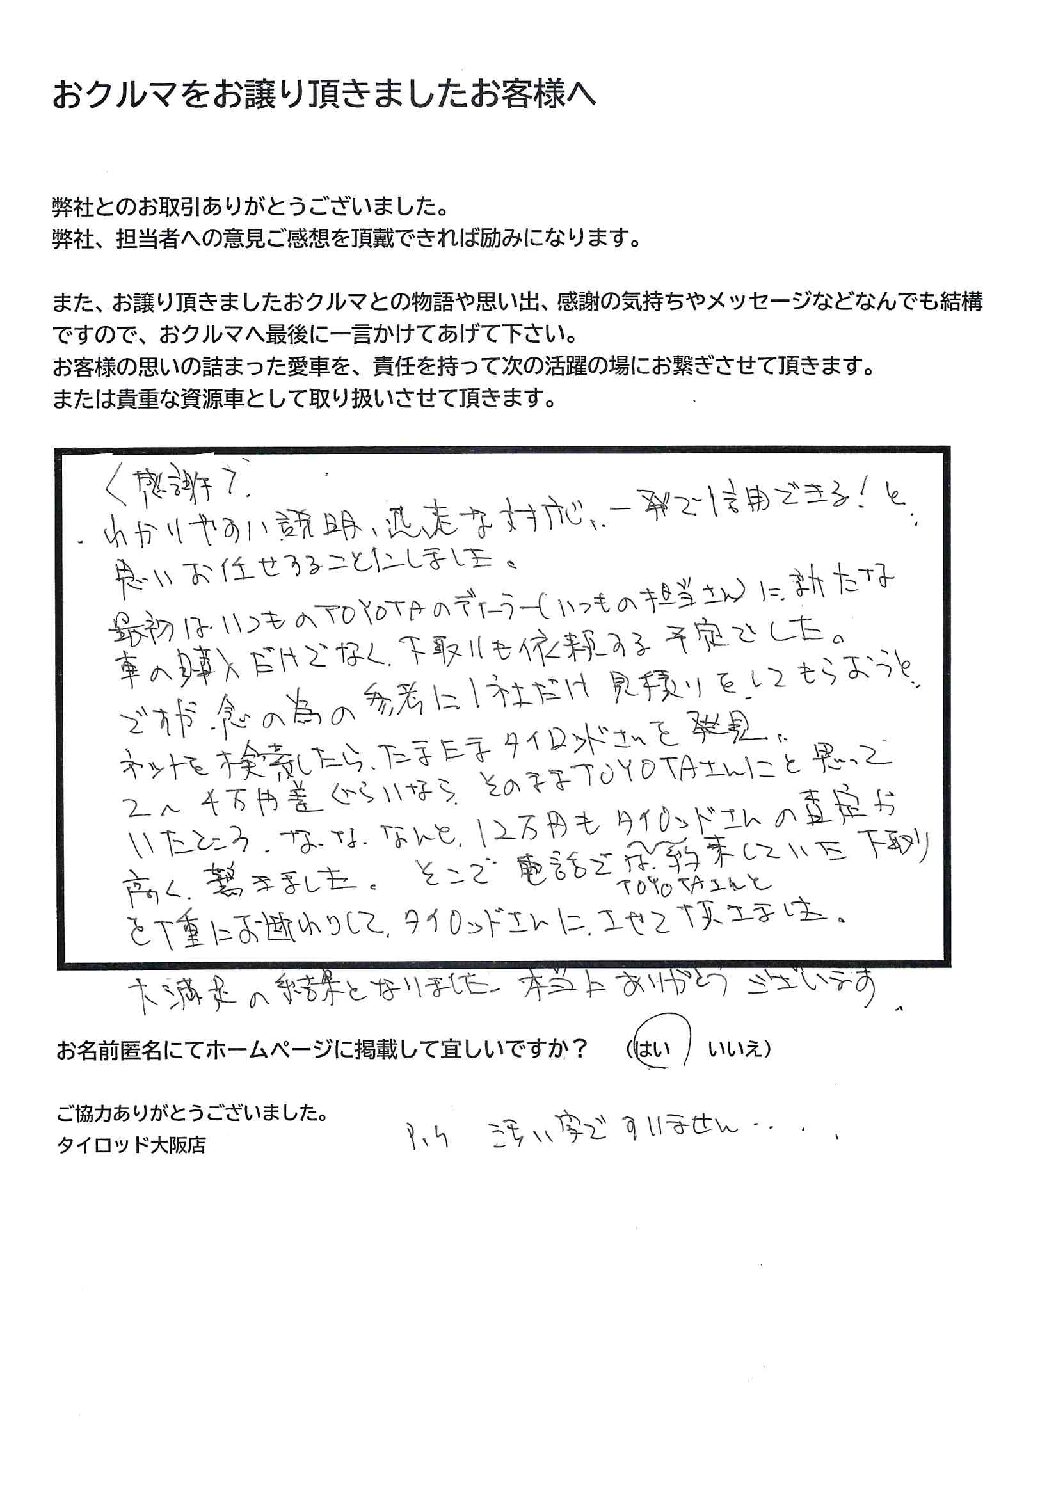 おクルマをお譲り頂きましたお客様へ
弊社とのお取引ありがとうございました。
弊社、担当者への意見ご感想を頂戴できれば励みになります。
また、お譲り頂きましたおクルマとの物語や思い出、感謝の気持ちやメッセージなどなんでも結構
ですので、おクルマへ最後に一言かけてあげて下さい。
お客様の思いの詰まった愛車を、責任を持って次の活躍の場にお繋ぎさせて頂きます。
または貴重な資源車として取り扱いさせて頂きます。
〈感謝〉
・わかりやすい説明、迅速な対応、一発で信用できる!と、
思いお任せすることにしました。
最初はいつものTOYOTAのディーラー(いつもの担当さん)に、新たな
車の購入だけでなく、下取りも依頼する予定でした。
ですが、念の為の参考に1社だけ見積りをしてもらおうと、
ネットを検索したら、たまたまタイロッドさんを発見、
2〜4万円差ぐらいなら、そのままTOYOTAさんにと思って
いたところ、な、な、なんと、12万円もタイロッドさんの査定が
高く、驚きました。そこで電話で、約束していた下取り
TOYOTAさんと
を丁重にお断りして、タイロッドさんに、させて頂きました。
大満足の結果となりました。本当にありがとうございます。
お名前匿名にてホームページに掲載して宜しいですか? (はい いいえ)
ご協力ありがとうございました。
タイロッド大阪店
汚い字ですいません・・・・